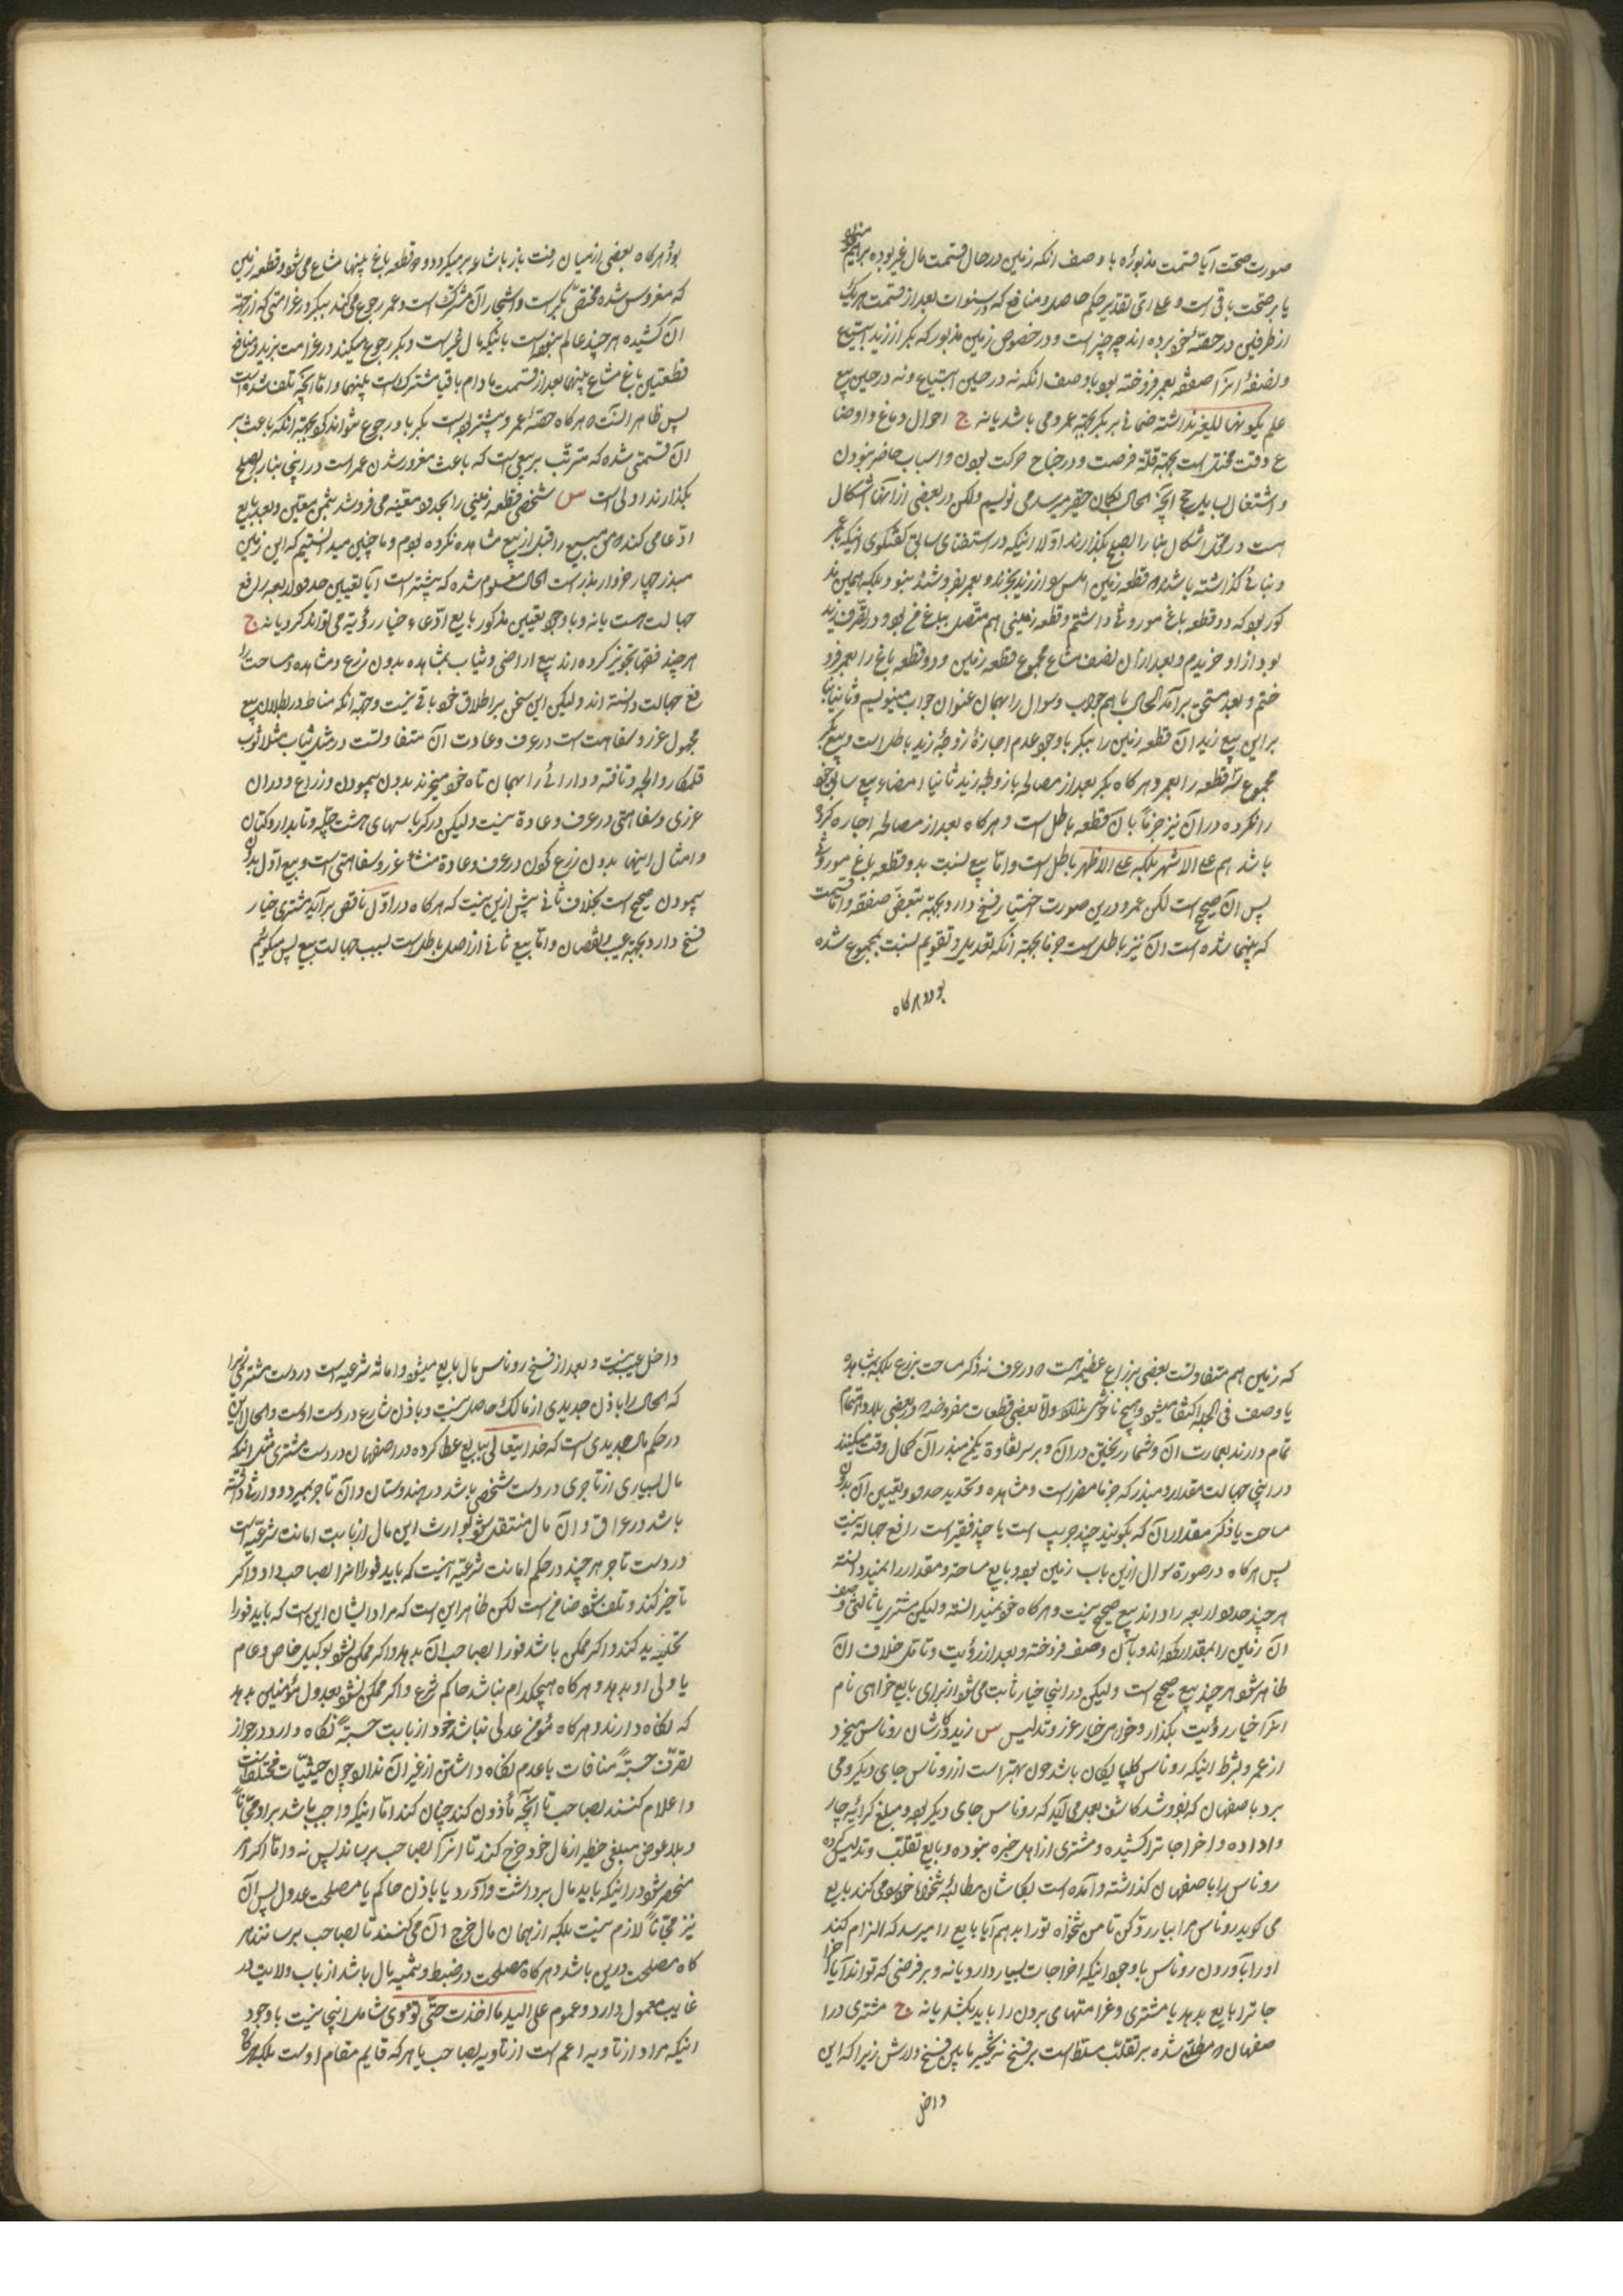 صورت صحت آیا قسمت مذبوره با وصف انکه زمین در حال قسمت مال غیر بوده برهم میخورد
یا بر صحت باقی است و علی ای تقدیر حکم حاصل و منافع که در سنوات بعد از قسمت هر یک
از طرفین در حصهٔ خود برده اند چه چیز است و در خصوص زمین مذبور که بکر از زید ابتیاع
و نصفهٔ انرا صفقه بعمر فروخته بود با وصف انکه نه در حین ابتیاع و نه در حین بیع
علم بکونها للغیر نداشته ضمانی بر بکر بجهة عمرو می باشد یا نه ج احوال دماغ و اوضا
ع وقت مختل است بجهة قلة فرصت و در جناح حرکت بودن و اسباب حاضر نبودن
و اشتغال بسیار حج انچه الحال بکان حقیر میرسد می نویسم ولکن در بعضی از آنها اشکال
هست در محل اشکال بنا را بصلح بگذارند اولا اینکه در استفتای سابق گفتگوی اینکه با عمر
و بنائی گذاشته باشند که قطعه زمین املس را از زید بخرند و بعمر بفروشند نبود و بلکه همین مذ
کور بود که دو قطعه باغ موروثی داشتم و قطعه زمینی هم متصل بباغ من بود و در تصرف زید
بود از او خریدم و بعد از ان نصف مشاع مجموع قطعه زمین و دو قطعه باغ را بعمر فرو
ختم و بعد مستحق برآمد الحال باهم جواب و سوال را بهمان عنوان جواب مینویسم و ثانیا بنا
بر این بیع زید آن قطعه زمین را ببکر با وجود عدم اجازهٔ زوجهٔ زید باطل است و بیع بکر
مجموع سه قطعه را بعمر و هر گاه بکر بعد از مصالحه با زوجه زید ثانیا امضاء بیع سابق خود
را نکرده در ان نیز جزماً بآن قطعه باطل است و هر گاه بعد از مصالحه اجازه کرده
باشد هم علی الاشهر بلکه علی الاظهر باطل است و اما بیع نسبت بدو قطعه باغ موروثی
پس ان صحیح است لکن عمرو درین صورت اختیار فسخ دارد بجهة تبعض صفقه و اما قسمت
که بینهما شده است ان نیز باطل است جزما بجهة انکه تعدیل و تقویم نسبت بمجموع شده
بود و هر گاه
بود و هر گاه بعضی از میان رفت باز باشاعه بر میگردد و دو قطعه باغ بینهما مشاع می شود و قطعه زمین
که مغروس شده مختص ببکر است و اشجار آن مشترک است و عمر رجوع می کند ببکر در غرامتی که از جهة
آن کشیده هر چند عالم نبوده است باینکه مال غیر است و بکر رجوع میکند در غرامت بزید و منافع
قطعتین باغ مشاع بینهما بعد از قسمت مادام باقیا مشترک است بینهما و اما انچه تلف شده است
پس ظاهر انست که هر گاه حصهٔ عمر و بیشتر بوده است بکر باو رجوع نتواند کرد بجهة انکه باعث بر
آن قسمتی شده که مترتب بر بیعی است که باعث مغرور شدن عمر است در اینجا بنا را بصلح
بگذارند اولی است س شخصی قطعه زمینی را بحدود معینه می فروشد بثمن معین و بعد بایع
ادعا می کند که من مبیع را قبل از بیع مشاهده نکرده بودم و ما چنین میدانستیم که این زمین
مبذر چهار خروار بذر است الحال معلوم شده که بیشتر است آیا تعیین حدود اربعه رافع
جهالت هست یا نه و با وجود تعیین مذکور بایع ادعاء خیار رؤیة می تواند کرد یا نه ج
هر چند فقها تجویز کرده اند بیع اراضی و ثیاب بمشاهده بدون زرع و مشاهده و مساحت را
رفع جهالت دانسته اند و لیکن این سخن بر اطلاق خود باقی نیست و جهة انکه مناط در بطلان بیع
مجهول غرر و سفاهت است در عرف و عادت و آن متفاوتست در مثل ثیاب مثلا ثوب
قلمکار و الجه و تافته و دارائی را بهمان تاه خود میخرند بدون پیمودن و زراع و در ان
غرری و سفاهتی در عرف و عادة نیست و لیکن در کرباسهای هشت چله و تابدار و کتان
و امثال اینها بدون زرع کردن در عرف و عادة منشاء غرر و سفاهتی است و بیع اول بدون
پیمودن صحیح است بخلاف ثانی بیش ازین نیست که هر گاه در اول ناقص برآید مشتری خیار
فسخ دارد بجهة عیب و نقصان و اما بیع ثانی از اصل باطل است بسبب جهالت بیع پس میگویم
که زمین هم متفاوتست بعضی مزارع عظیمه هست که در عرف نه ذکر مساحت بزرع بلکه بمشاهده
یا وصف فی الجمله اکتفا میشود و هیچ ناخوشی ندارد و اما بعضی قطعات مفروضه که در بعضی بلاد و اهتمام
تمام دارند بعمارت آن و شمار ریختن در ان و بر سر تفاوة یکمن مبذر آن کمال دقت میکنند
در اینجا جهالت مقدار و مبذر که جزما مضر است و مشاهده و تحدید حدود و تعیین آن بدون
مساحت یا ذکر مقدار ان که بگویند چند جریب است یا چند قفیز است رافع جهالة نیست
پس هر گاه در صورة سوال از این باب زمین بوده و بایع مساحة و مقدار را نمیدانسته
هر چند حدود اربعه را داند بیع صحیح نیست و هر گاه خود نمیدانسته و لیکن مشتری یا ثالثی وصف
ان زمین را بمقدار کرده اند و بآن وصف فروخته و بعد از رؤیت و تامل خلاف ان
ظاهر شود هر چند بیع صحیح است و لیکن در اینجا خیار ثابت می شود از برای بایع خواهی نام
انرا خیار رؤیت بگذار و خواهی خیار غرر و تدلیس س زید و کاشان روناس میخرد
از عمر و بشرط اینکه روناس گلپایگان باشد چون بهتر است از روناس جای دیگر و می
برد باصفهان که بفروشد کاشف بعمل می آید که روناس جای دیگر بوده و مبلغ کرایه چار
وا داده و اخراجات را کشیده و مشتری از اهل خبره نبوده و بایع تقلب و تدلیس کرده
روناس را باصفهان گذاشته و آمده است بکاشان مطالبهٔ تنخواه خود می کند بایع
می گوید روناس مرا بیار رد کن تا من تنخواه تو را بدهم آیا بایع را میرسد که الزام کند
او را بآوردن روناس با وجود اینکه اخراجات بسیار دارد یا نه و بر فرضی که تواند آیا اخرا
جات را بایع بدهد یا مشتری و غرامتهای بردن را باید بکشد یا نه ج مشتری در ا
صفهان که مطلع شده بر تقلب مسلط است بر فسخ نه تخییر مابین فسخ و ارش زیرا که این
داخل
داخل عیب نیست و بعد از فسخ روناس مال بایع میشود و امانهٔ شرعیه است در دست مشتری زیرا
که الحال را باذن جدیدی از مالک حاصل نیست و باذن شارع در دست اوست و الحال این
در حکم مال جدیدی است که خدا یتعالی ببایع عطا کرده در اصفهان در دست مشتری مثل اینکه
مال بسیاری از تاجری در دست شخصی باشد در هندوستان و آن تاجر بمیرد و وارثی داشته
باشد در عراق و آن مال منتقل شود بوارث این مال از بابت امانت شرعیه است
در دست تاجر هر چند در حکم امانت شرعیه اینست که باید فورا انرا بصاحب داد و اگر
تاخیر کند و تلف شود ضامن است لکن ظاهر این است که مراد ایشان این است که باید فورا
تخلیه ید کند و اگر ممکن باشد فورا بصاحب آن بدهد و اگر ممکن نشود بوکیل خاص و عام
یا ولی او بدهد و هر گاه هیچکدام نباشد حاکم شرع و اگر ممکن نشود بعدول مؤمنین بدهد
که نگاه دارند و هر گاه مؤمن عدلی نباشد خود از بابت حسبةً نگاه دارد و جواز
تصرف حسبةً منافات با عدم نگاه داشتن از غیر آن ندارد چون حیثیات مختلف است
و اعلام کنند بصاحب تا انچه مأذون کند چنان کند اما اینکه واجب باشد بر او مجاناً
و بلا عوض مبلغی خطیر از مال خود خرج کند تا انرا بصاحب برساند پس نه و اما اگر امر
منحصر شود در اینکه باید مال برداشت و آورد یا باذن حاکم یا مصلحت عدول پس آن
نیز مجاناً لازم نیست بلکه از همان مال خرج آن می کنند تا بصاحب برسانند هر
گاه مصلحت درین باشد و هر گاه مصلحت در ضبط و تنمیه مال باشد از باب ولایت در
غایب معمول دارد و عموم علی الید ما اخذت حتی تؤدی شامل اینجا نیست با وجود
اینکه مراد از تادیه اعم است از تادیه بصاحب یا هر که قایم مقام اوست بلکه هر گاه